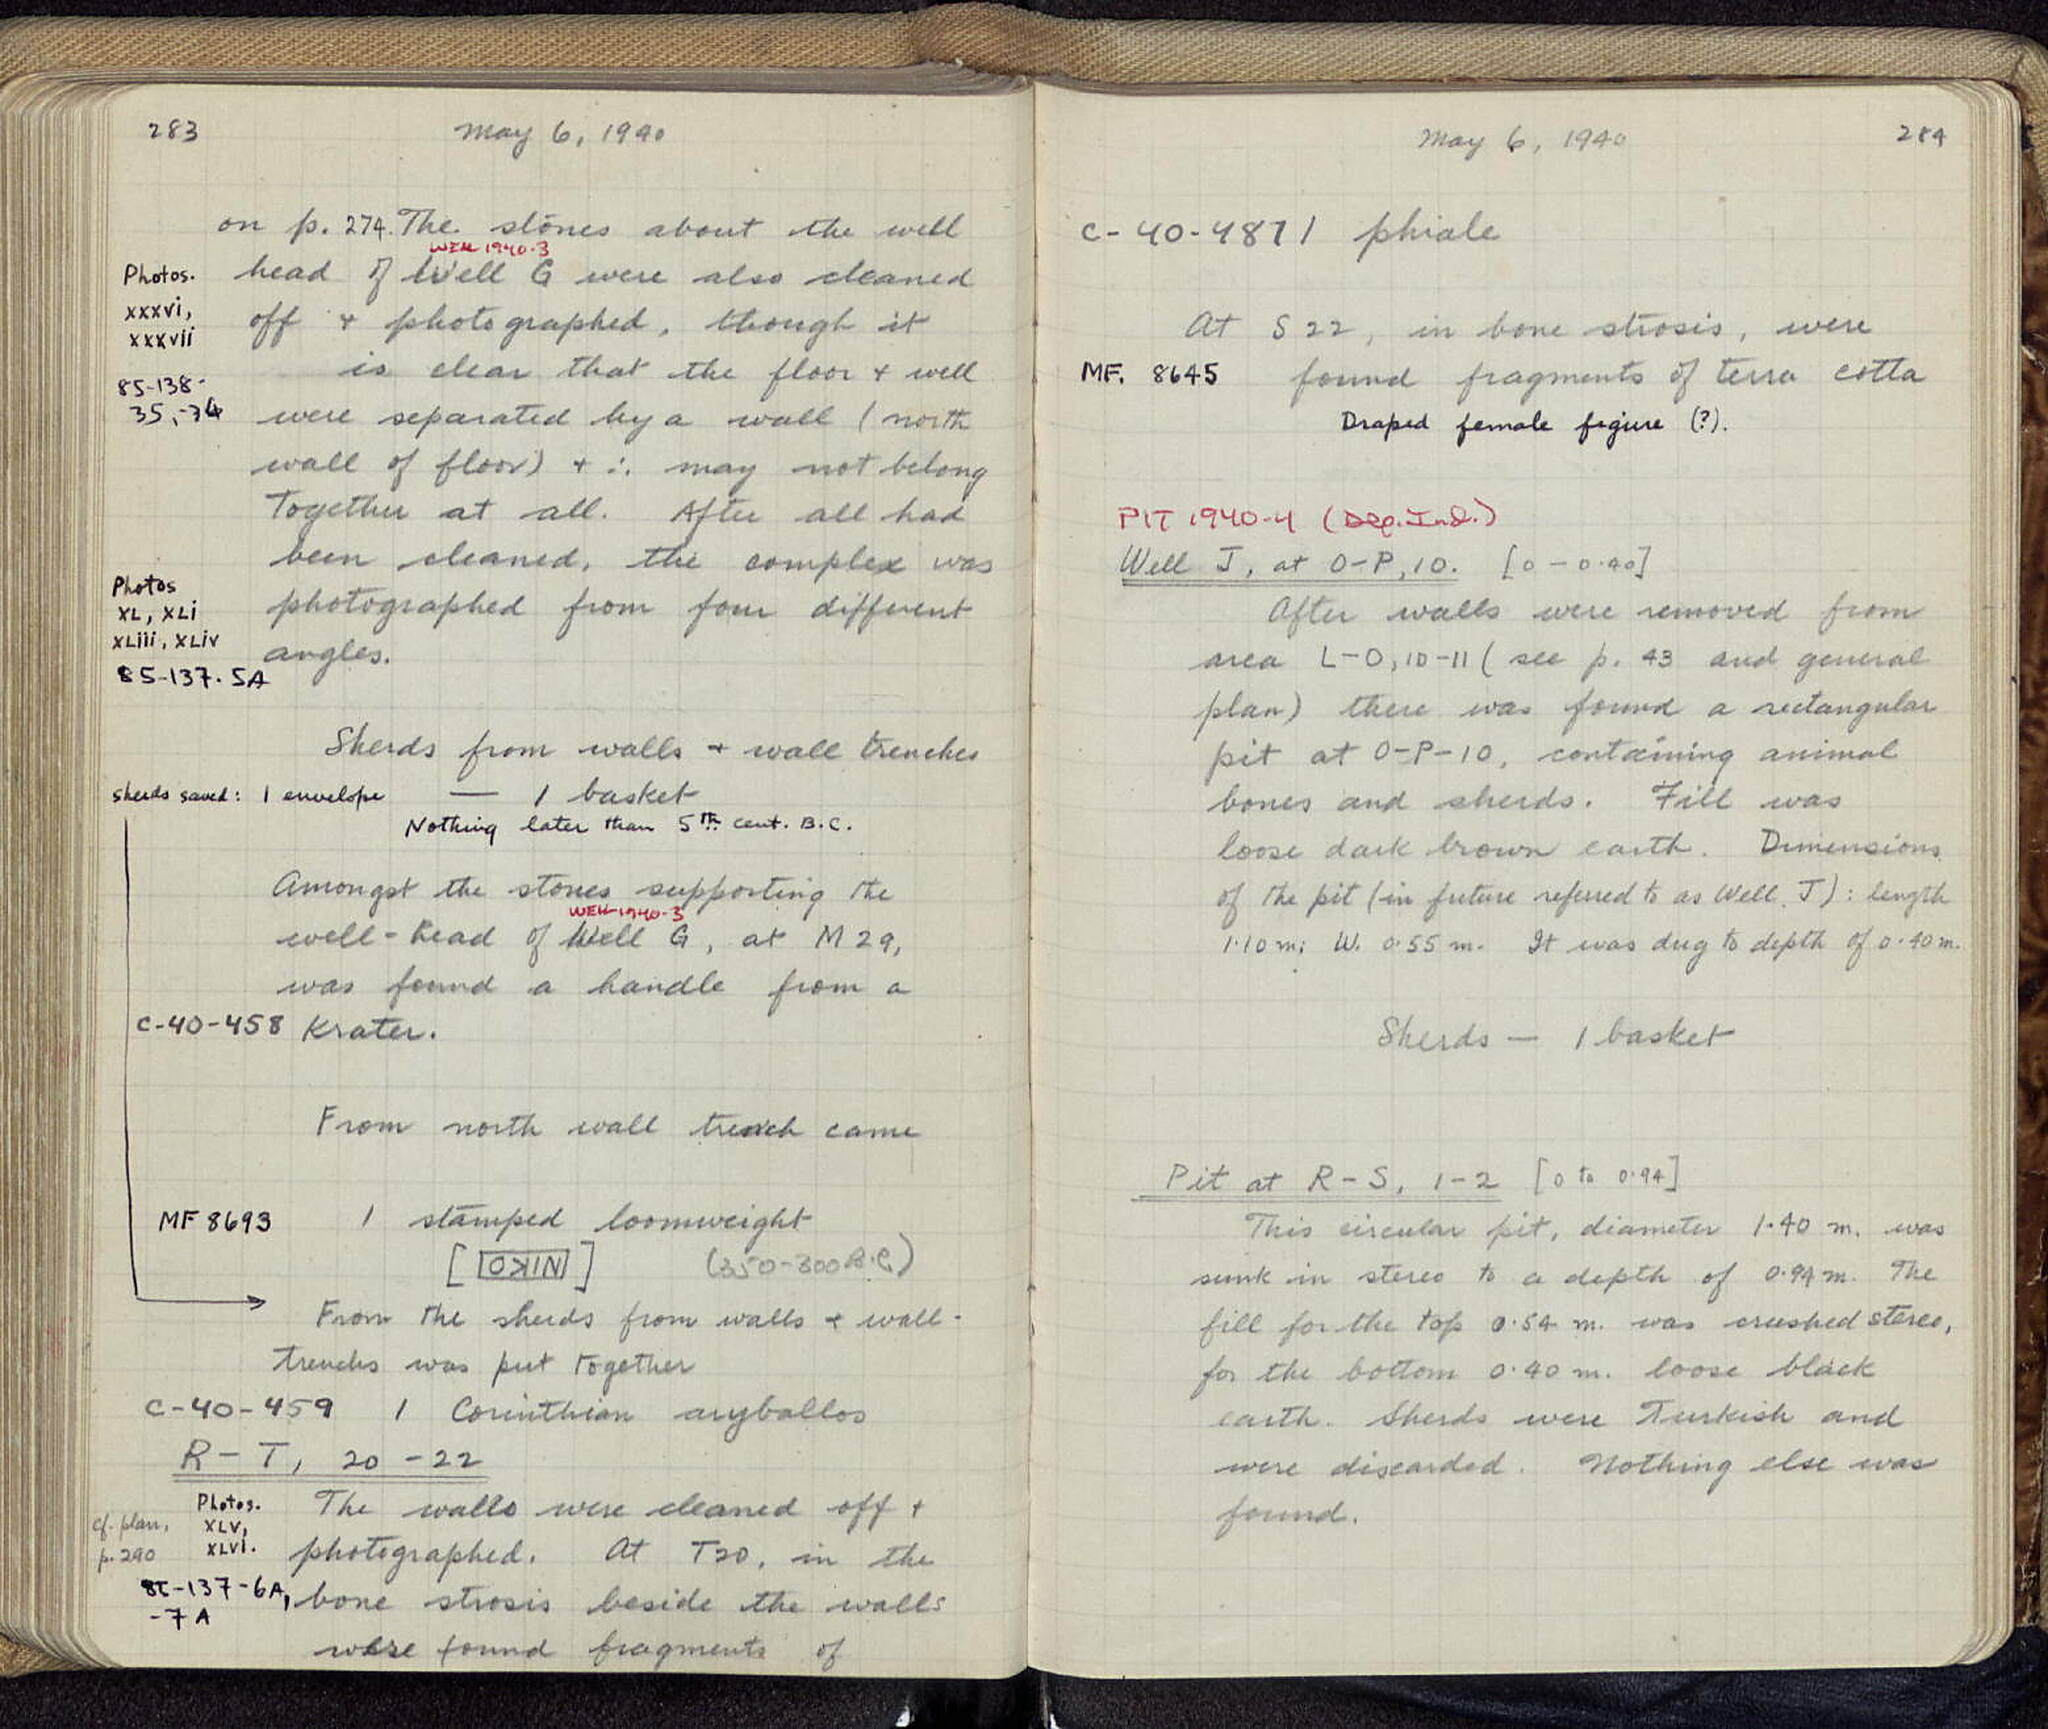 283
May 6, 1940
on p. 274. The stones about the well
Well 1940-3
Photos.
head of Well G were also cleaned
xxxvi,
off + photographed, though it
xxxvii
is clear that the floor + well
85-138-
35,-34
were separated by a wall (north
wall of floor) + ∴ may not belong
together at all. After all had
been cleaned, the complex was
Photos
XL, XLi
photographed from four different
XLiii, XLiv
angles.
85-137-5A
Sherds from walls + wall trenches
sherds saved: 1 envelope — 1 basket
Nothing later than 5th cent. B.C.
Amongst the stones supporting the
Well 1940-3
well-head of Well G, at M 29,
was found a handle from a
C-40-458 krater.
From north wall trench came
MF 8693 1 stamped loomweight
[NIKO] (350-300 B.C.)
From the sherds from walls + wall-
trenches was put together
C-40-459 1 Corinthian aryballos
R-T, 20-22
Photos.
XLV,
XLVI.
cf. plan,
p. 290
The walls were cleaned off +
photographed. At T20, in the
85-137-6A,
-7A
bone strosis beside the walls
were found fragments of
May 6, 1940
284
C-40-487 1 phiale
At S 22, in bone strosis, were
MF. 8645 found fragments of terra cotta
Draped female figure (?).
PIT 1940-4 (Dep. Ind.)
Well J, at O-P, 10. [0 - 0.40]
After walls were removed from
area L-O, 10-11 (see p. 43 and general
plan) there was found a rectangular
pit at O-P-10, containing animal
bones and sherds. Fill was
loose dark brown earth. Dimensions
of the pit (in future referred to as Well J): length
1.10 m; W. 0.55 m. It was dug to depth of 0.40 m.
Sherds — 1 basket
Pit at R-S, 1-2 [0 to 0.94]
This circular pit, diameter 1.40 m. was
sunk in stereo to a depth of 0.94 m. The
fill for the top 0.54 m. was crushed stereo,
for the bottom 0.40 m. loose black
earth. Sherds were Turkish and
were discarded. Nothing else was
found.